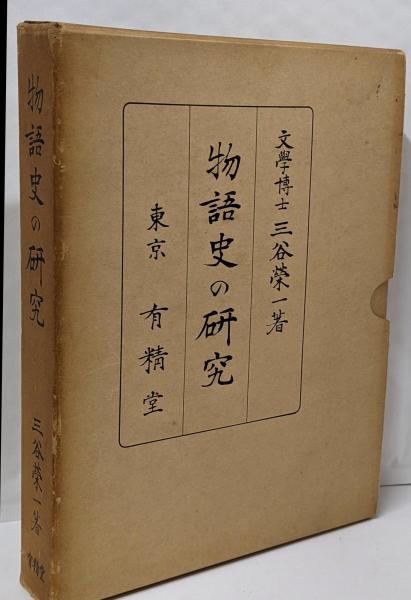 文學博士 三谷榮一著
物語史の研究
東京 有精堂
物語史の研究
三谷榮一著
有精堂